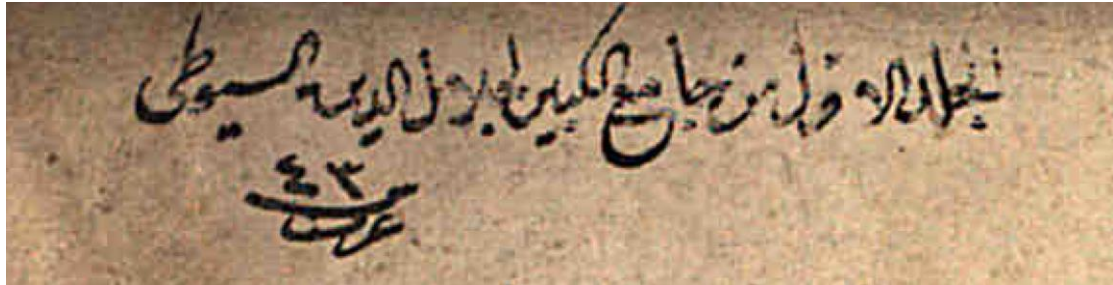 المجلد الاول من جامع الكبير لجلال الدين السيوطي
٤٣